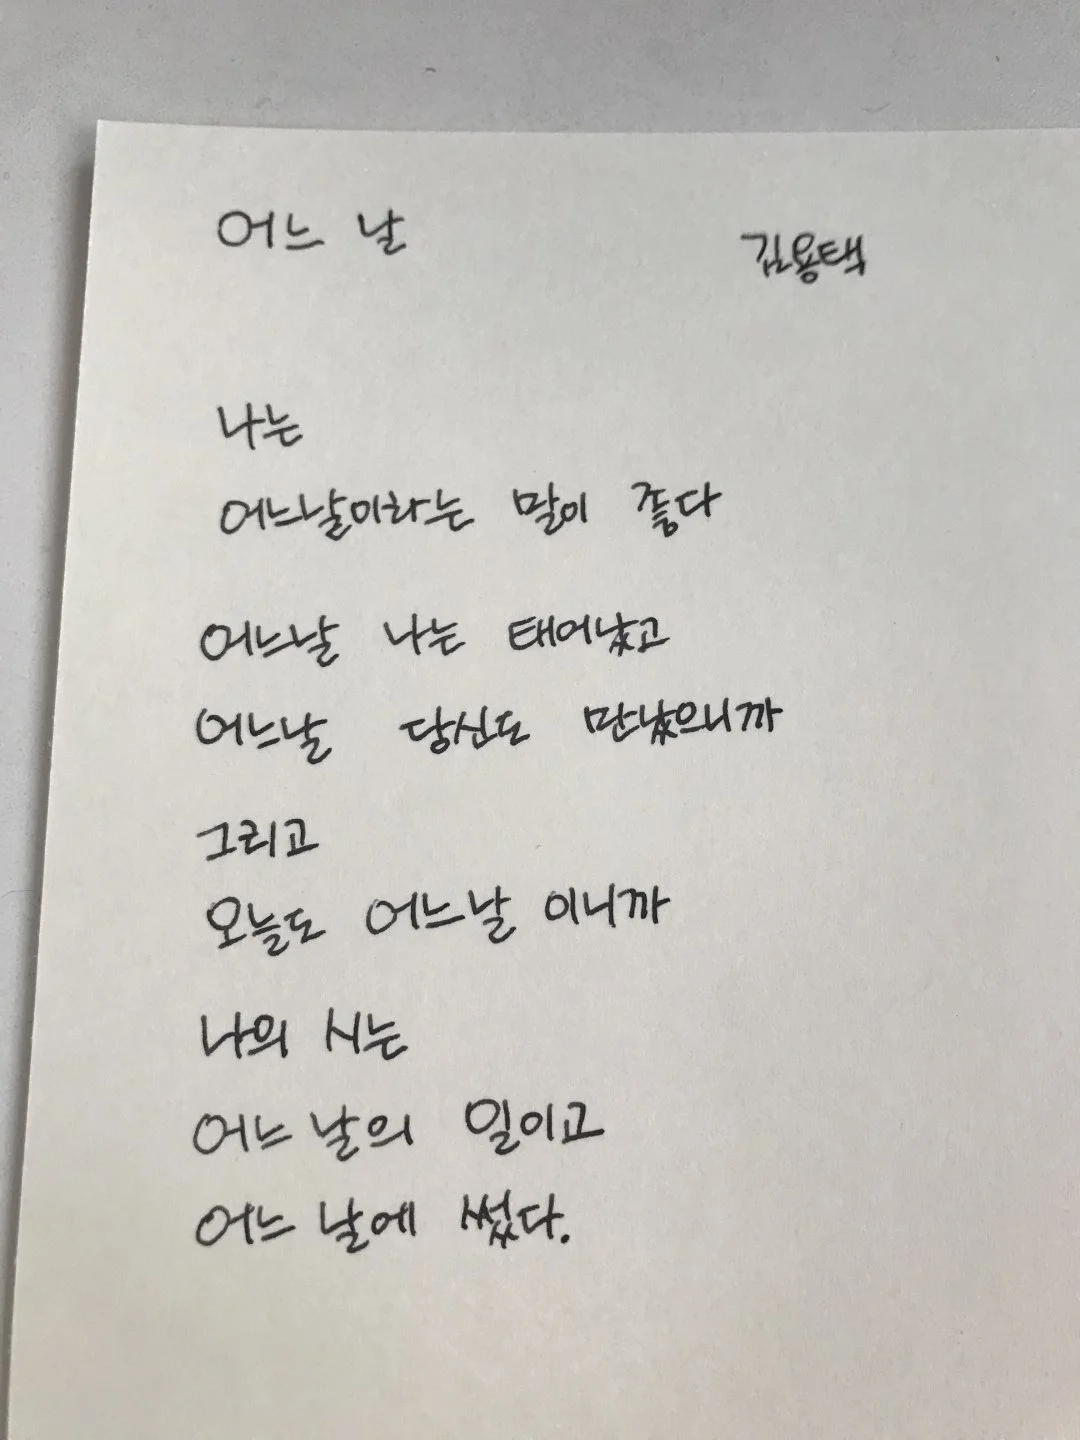 어느 날
김용택
나는
어느날이라는 말이 좋다
어느날 나는 태어났고
어느날 당신도 만났으니까
그리고
오늘도 어느날 이니까
나의 시는
어느 날의 일이고
어느 날에 썼다.